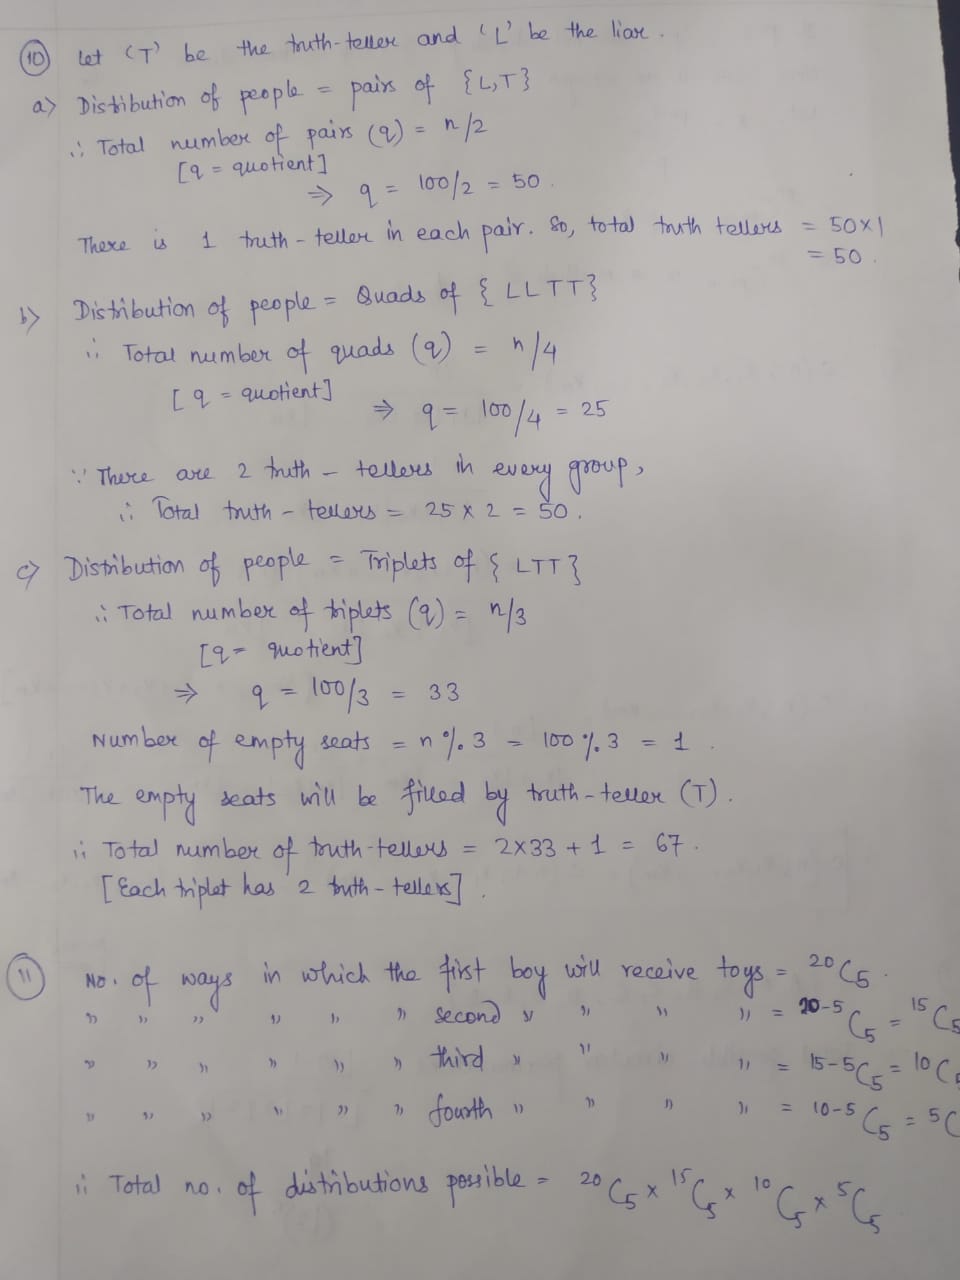 10 Let 'T' be the truth-teller and 'L' be the liar.
a> Distribution of people = pairs of {L,T}
∴ Total number of pairs (q) = n/2
[q = quotient]
⇒ q = 100/2 = 50.
There is 1 truth-teller in each pair. So, total truth tellers = 50×1
= 50.
b> Distribution of people = Quads of { LLTT}
∴ Total number of quads (q) = n/4
[q = quotient]
⇒ q = 100/4 = 25
∵ There are 2 truth-tellers in every group,
∴ Total truth-tellers = 25 × 2 = 50.
c> Distribution of people = Triplets of { LTT}
∴ Total number of triplets (q) = n/3
[q = quotient]
⇒ q = 100/3 = 33
Number of empty seats = n % 3 = 100 % 3 = 1.
The empty seats will be filled by truth-teller (T).
∴ Total number of truth-tellers = 2×33 + 1 = 67.
[Each triplet has 2 truth-tellers].
11 No. of ways in which the first boy will receive toys = ²⁰C₅.
" " " " " " second " " " " = ²⁰⁻⁵C₅ = ¹⁵C₅
" " " " " " third " " " " = ¹⁵⁻⁵C₅ = ¹⁰C₅
" " " " " " fourth " " " " = ¹⁰⁻⁵C₅ = ⁵C
∴ Total no. of distributions possible = ²⁰C₅ × ¹⁵C₅ × ¹⁰C₅ × ⁵C₅